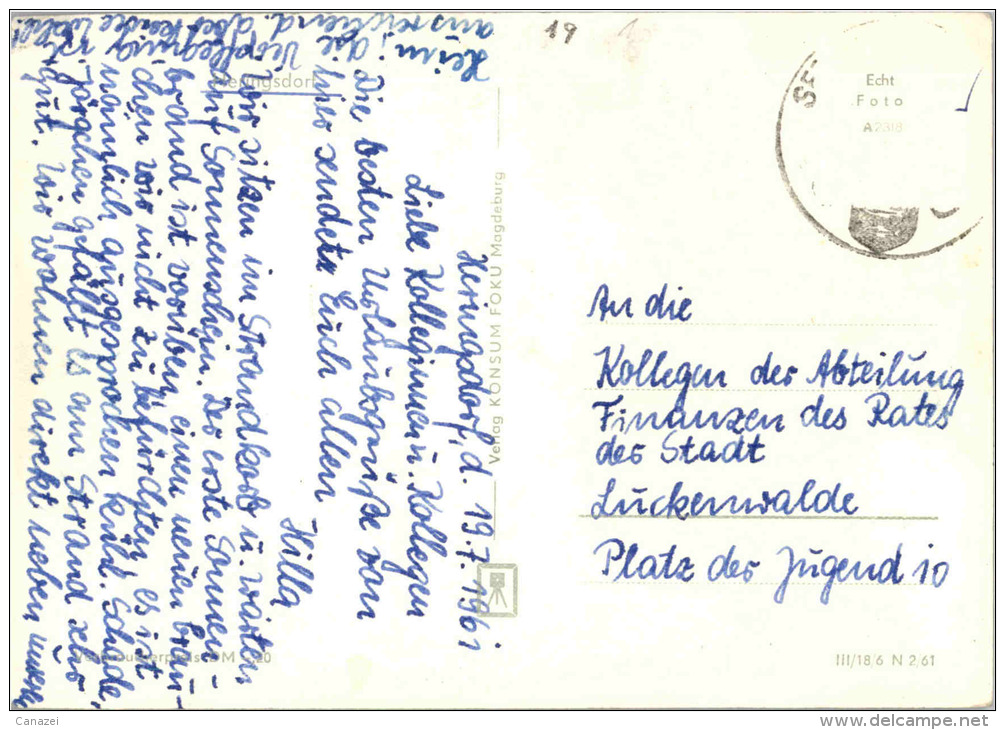 Heringsdorf, d. 19.7.1961
Liebe Kolleginnen u. Kollegen
Die besten Urlaubsgrüße von
hier sendete Euch allen
Hilla
Wir sitzen im Strandkorb u. warten
auf Sonnenschein. Der erste Sonnen-
brand ist vorüber, einen neuen brau-
chen wir nicht zu befürchten, es ist
nämlich ausgesprochen kühl. Schade,
Jörgchen gefällt es am Strand sehr
gut. Wir wohnen direkt neben unserem
Heim, die Verpflegung ist
ausreichend.
Heringsdorf
Verlag KONSUM FOKU Magdeburg
Verbraucherpreis DM 0,20
19
Echt
Foto
A2318
An die
Kollegen der Abteilung
Finanzen des Rates
der Stadt
Luckenwalde
Platz der Jugend 10
III/18/6 N 2/61
Canazei
www.delcampe.net